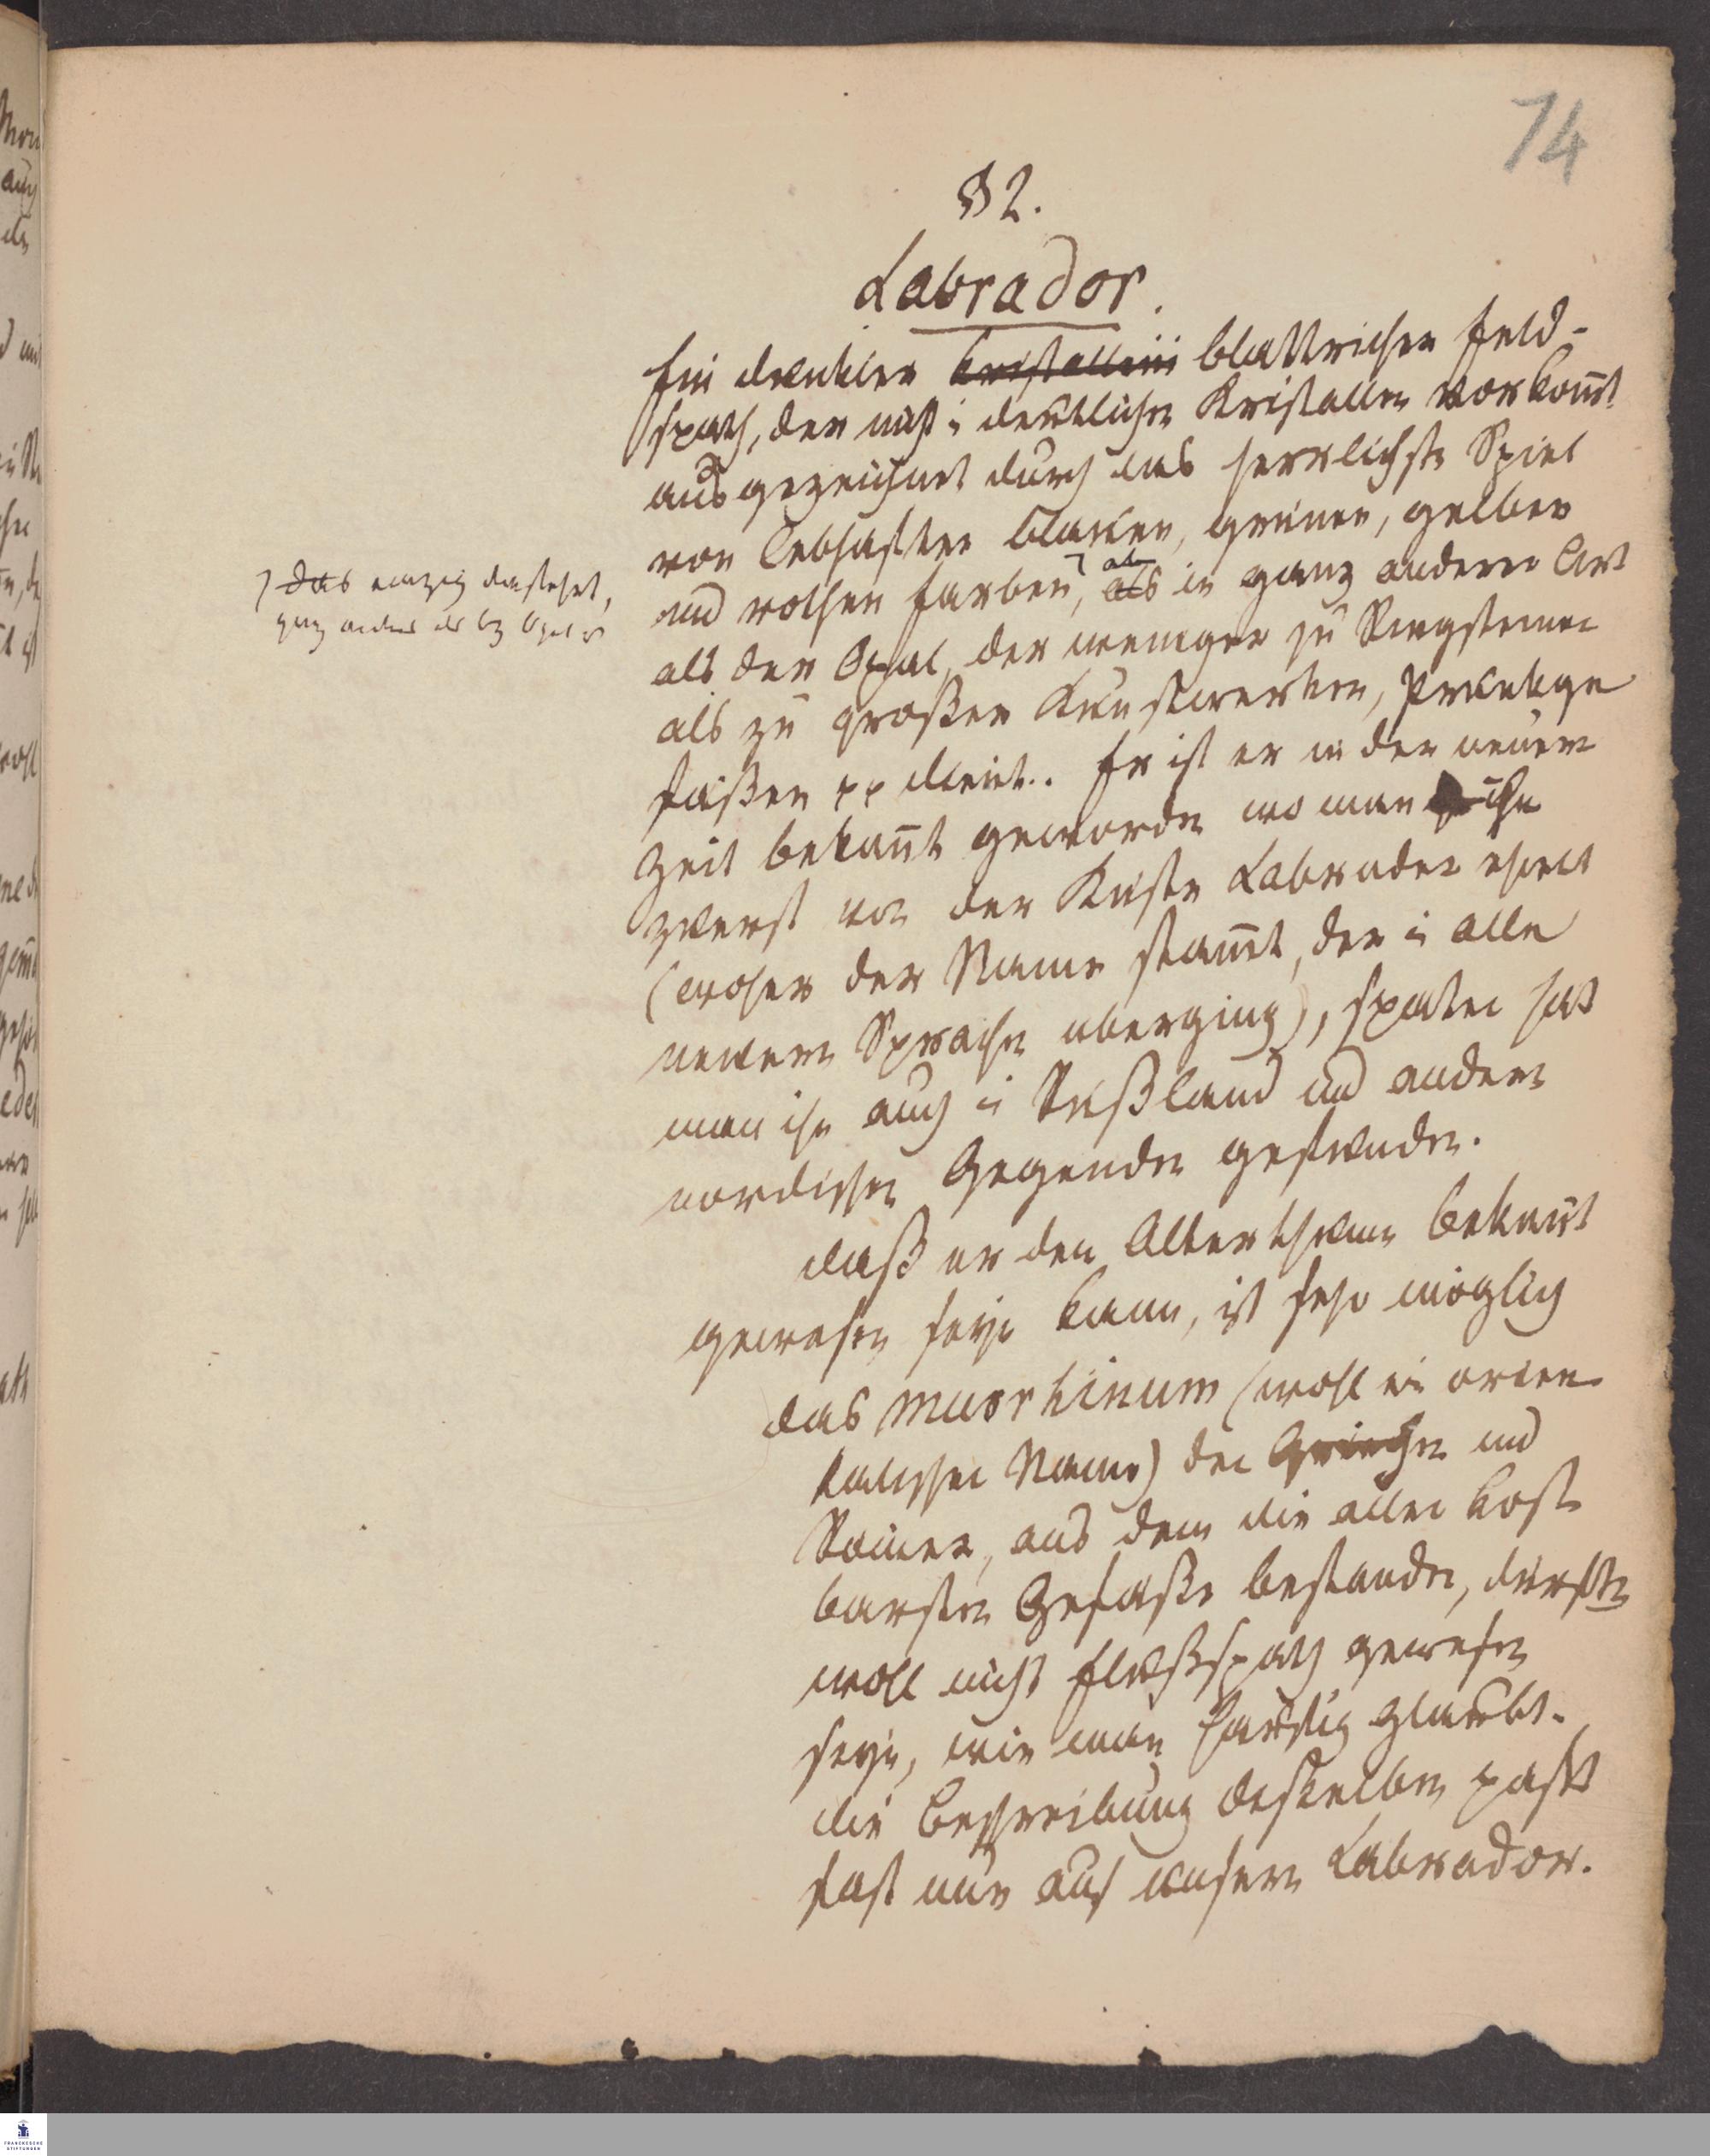 74
§ 2.
Labrador.
Ein dunkler kristallin blattricher Feld-
spath, der nicht in deutlichen Kristallen vorkom̄t
ausgezeichnet durch das herrlichste Spiel
von lebhaften blauen, grünen, gelben
und rothen Farben, als in ganz anderer Art
als der Opal, der weniger zu Ringsteinen
als zu großen Kunstwerken, Prunkge
faßen pp dient. Er ist er in der neuern
Zeit bekan̄t geworden wo man ihn
zuerst von der Küste Labrador erhielt
(woher der Name stam̄t, der in alle
neuern Sprachen uberging), spater hat
man ihn auch in Rußland und andern
nordischen Gegenden gefunden.
Daß er dem Alterthum bekan̄t
gewesen seyn kann, ist sehr möglich
das murrhinum (wohl ein orien
talischer Name) der Griechen und
Römer, aus dem die aller kost
barsten Gefaße bestanden, dürfte
wohl nicht Flußspath gewesen
seyn, wie man häufig glaubt.
die Beschreibung desselben paßt
fast nur auf unsern Labrador.
das einzig dasteht,
ganz anders als
FRANCKESCHE
STIFTUNGEN